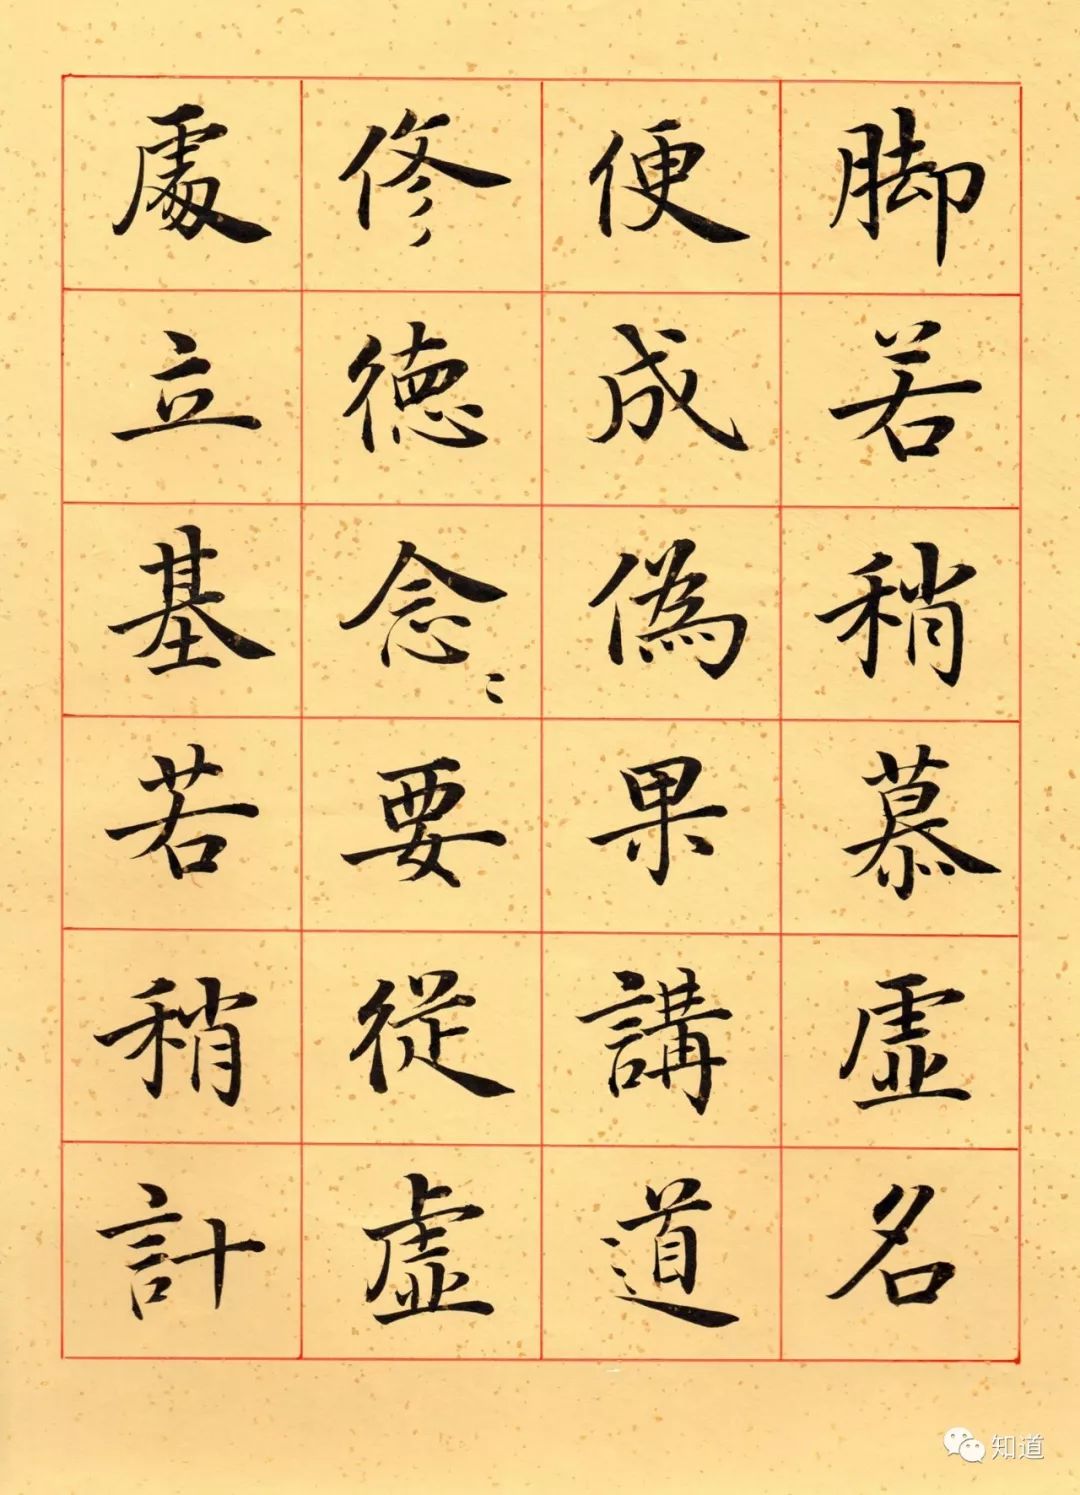 脚若稍慕虛名
便成偽果講道
修德念〻要從虛
處立基若稍計
知道